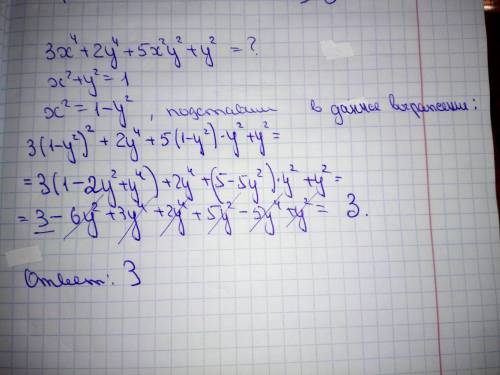 3x⁴+2y⁴+5x²y²+y² = ?
x²+y²=1
x²=1-y², подставим в данное выражение:
3(1-y²)²+2y⁴+5(1-y²)·y²+y²=
=3(1-2y²+y⁴)+2y⁴+(5-5y²)·y²+y²=
=3-6y²+3y⁴+2y⁴+5y²-5y⁴+y²= 3.
Ответ: 3